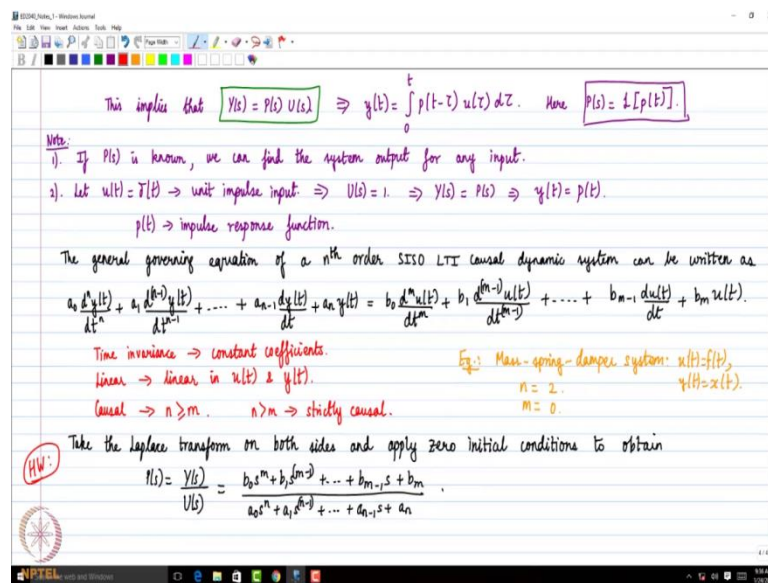 ED2040_Notes_1 - Windows Journal
File Edit View Insert Actions Tools Help
Page Width
B I
This implies that Y(s) = P(s) U(s) ⇒ y(t) = ∫₀ᵗ p(t-τ) u(τ) dτ. Here P(s) = L[p(t)].
Note:
1). If P(s) is known, we can find the system output for any input.
2). Let u(t) = δ(t) → unit impulse input. ⇒ U(s) = 1. ⇒ Y(s) = P(s) ⇒ y(t) = p(t).
p(t) → impulse response function.
The general governing equation of a nth order SISO LTI causal dynamic system can be written as
a₀ dⁿy(t)/dtⁿ + a₁ d⁽ⁿ⁻¹⁾y(t)/dtⁿ⁻¹ + .... + aₙ₋₁ dy(t)/dt + aₙ y(t) = b₀ dᵐu(t)/dtᵐ + b₁ d⁽ᵐ⁻¹⁾u(t)/dt⁽ᵐ⁻¹⁾ + .... + bₘ₋₁ du(t)/dt + bₘ u(t).
Time invariance → constant coefficients.
Linear → linear in u(t) & y(t).
Causal → n ≥ m. n > m → strictly causal.
Eg.: Mass-spring-damper system: u(t) = f(t),
y(t) = x(t).
n = 2.
m = 0.
Take the Laplace transform on both sides and apply zero initial conditions to obtain
HW:
P(s) = Y(s)/U(s) = (b₀sᵐ + b₁s⁽ᵐ⁻¹⁾ + ... + bₘ₋₁s + bₘ)/(a₀sⁿ + a₁s⁽ⁿ⁻¹⁾ + ... + aₙ₋₁s + aₙ) .
NPTEL